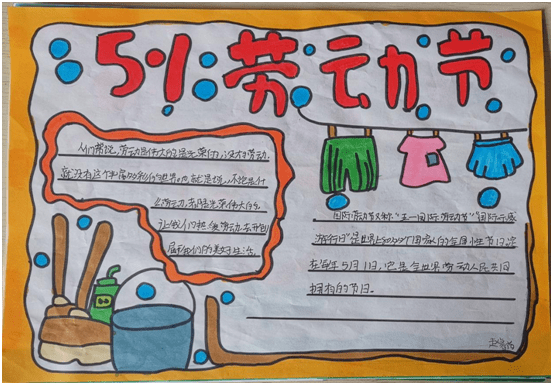 51劳动节
人们常说,劳动是伟大的,是光荣的,没有劳动
就没有这个
么劳动,都是光荣伟大的
让我们用劳动去开创
属于我们的美好生活。
国际劳动节又称"五一国际劳动节""国际示威
游行日"是世界上80多个国家的全国性节日,定
在每年5月1日,它是全世界劳动人民共同
拥有的节日。